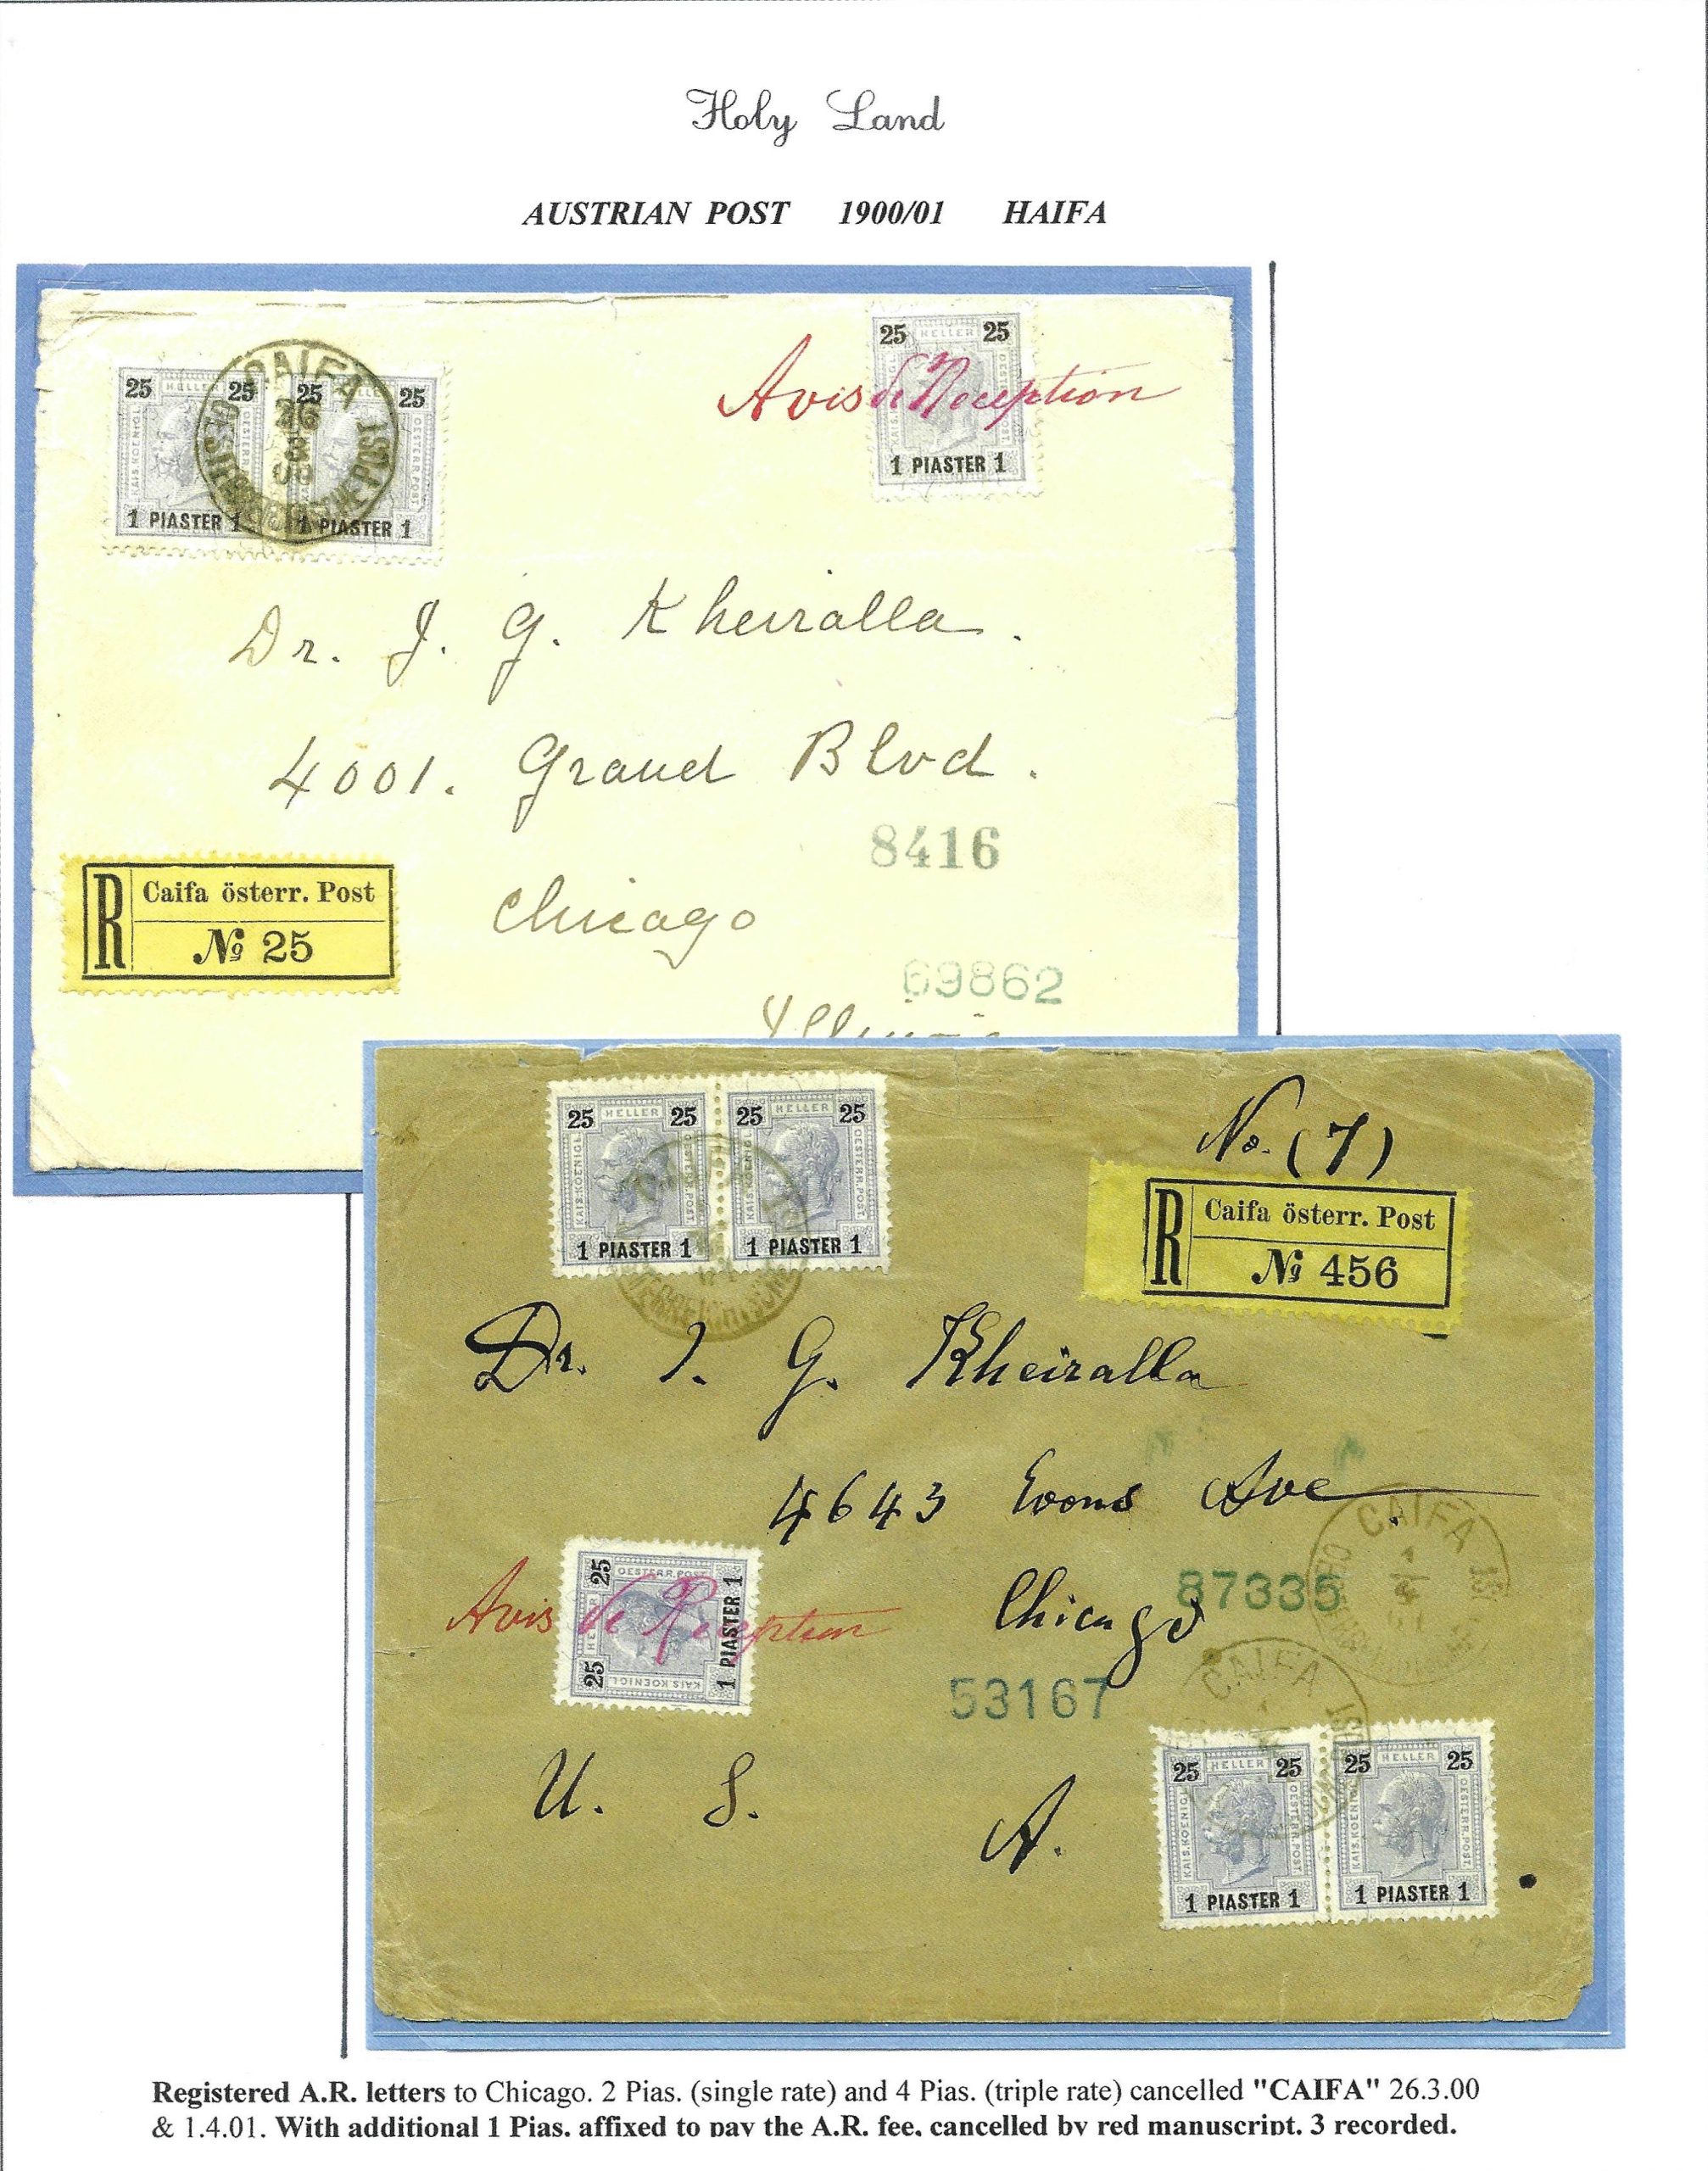 Holy Land
AUSTRIAN POST 1900/01 HAIFA
25 HELLER 25
KAIS. KOENIGL. OESTERR. POST.
1 PIASTER 1
25 25
OESTERR. POST.
1 PIASTER 1
CAIFA
26
3
00
25 HELLER 25
1 PIASTER 1
Avis de Reception
Dr. J. G. Kheiralla.
4001. Grand Blvd.
8416
Chicago
69862
Illinois
R Caifa österr. Post
No 25
25 HELLER 25
KAIS. KOENIGL. OESTERR. POST.
1 PIASTER 1
25 HELLER 25
KAIS. KOENIGL. OESTERR. POST.
1 PIASTER 1
No. (7)
R Caifa österr. Post
No 456
Dr. I. G. Kheiralla
4643 Ave
CAIFA
Chicago
87335
Avis de Reception
25 25
OESTERR. POST
KAIS. KOENIGL.
1 PIASTER 1
53167
CAIFA
U. S. A.
25 HELLER 25
KAIS. KOENIGL. OESTERR. POST.
1 PIASTER 1
25 HELLER 25
KAIS. KOENIGL. OESTERR. POST.
1 PIASTER 1
Registered A.R. letters to Chicago. 2 Pias. (single rate) and 4 Pias. (triple rate) cancelled "CAIFA" 26.3.00
& 1.4.01. With additional 1 Pias. affixed to pay the A.R. fee, cancelled by red manuscript. 3 recorded.